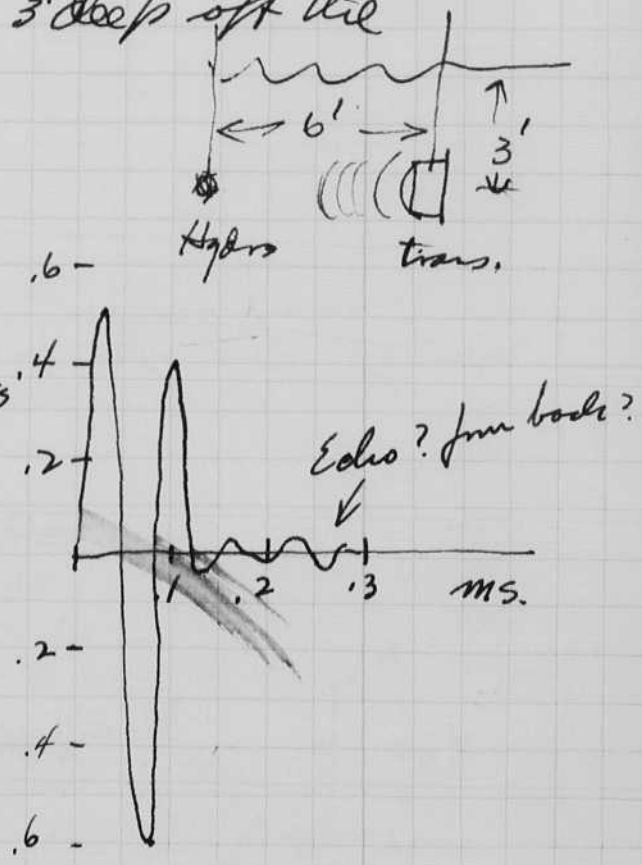 3' deep off the
6'
3'
Hydro
trans.
.6
.4
.2
Echo? from back?
.1 .2 .3 ms.
.2
.4
.6